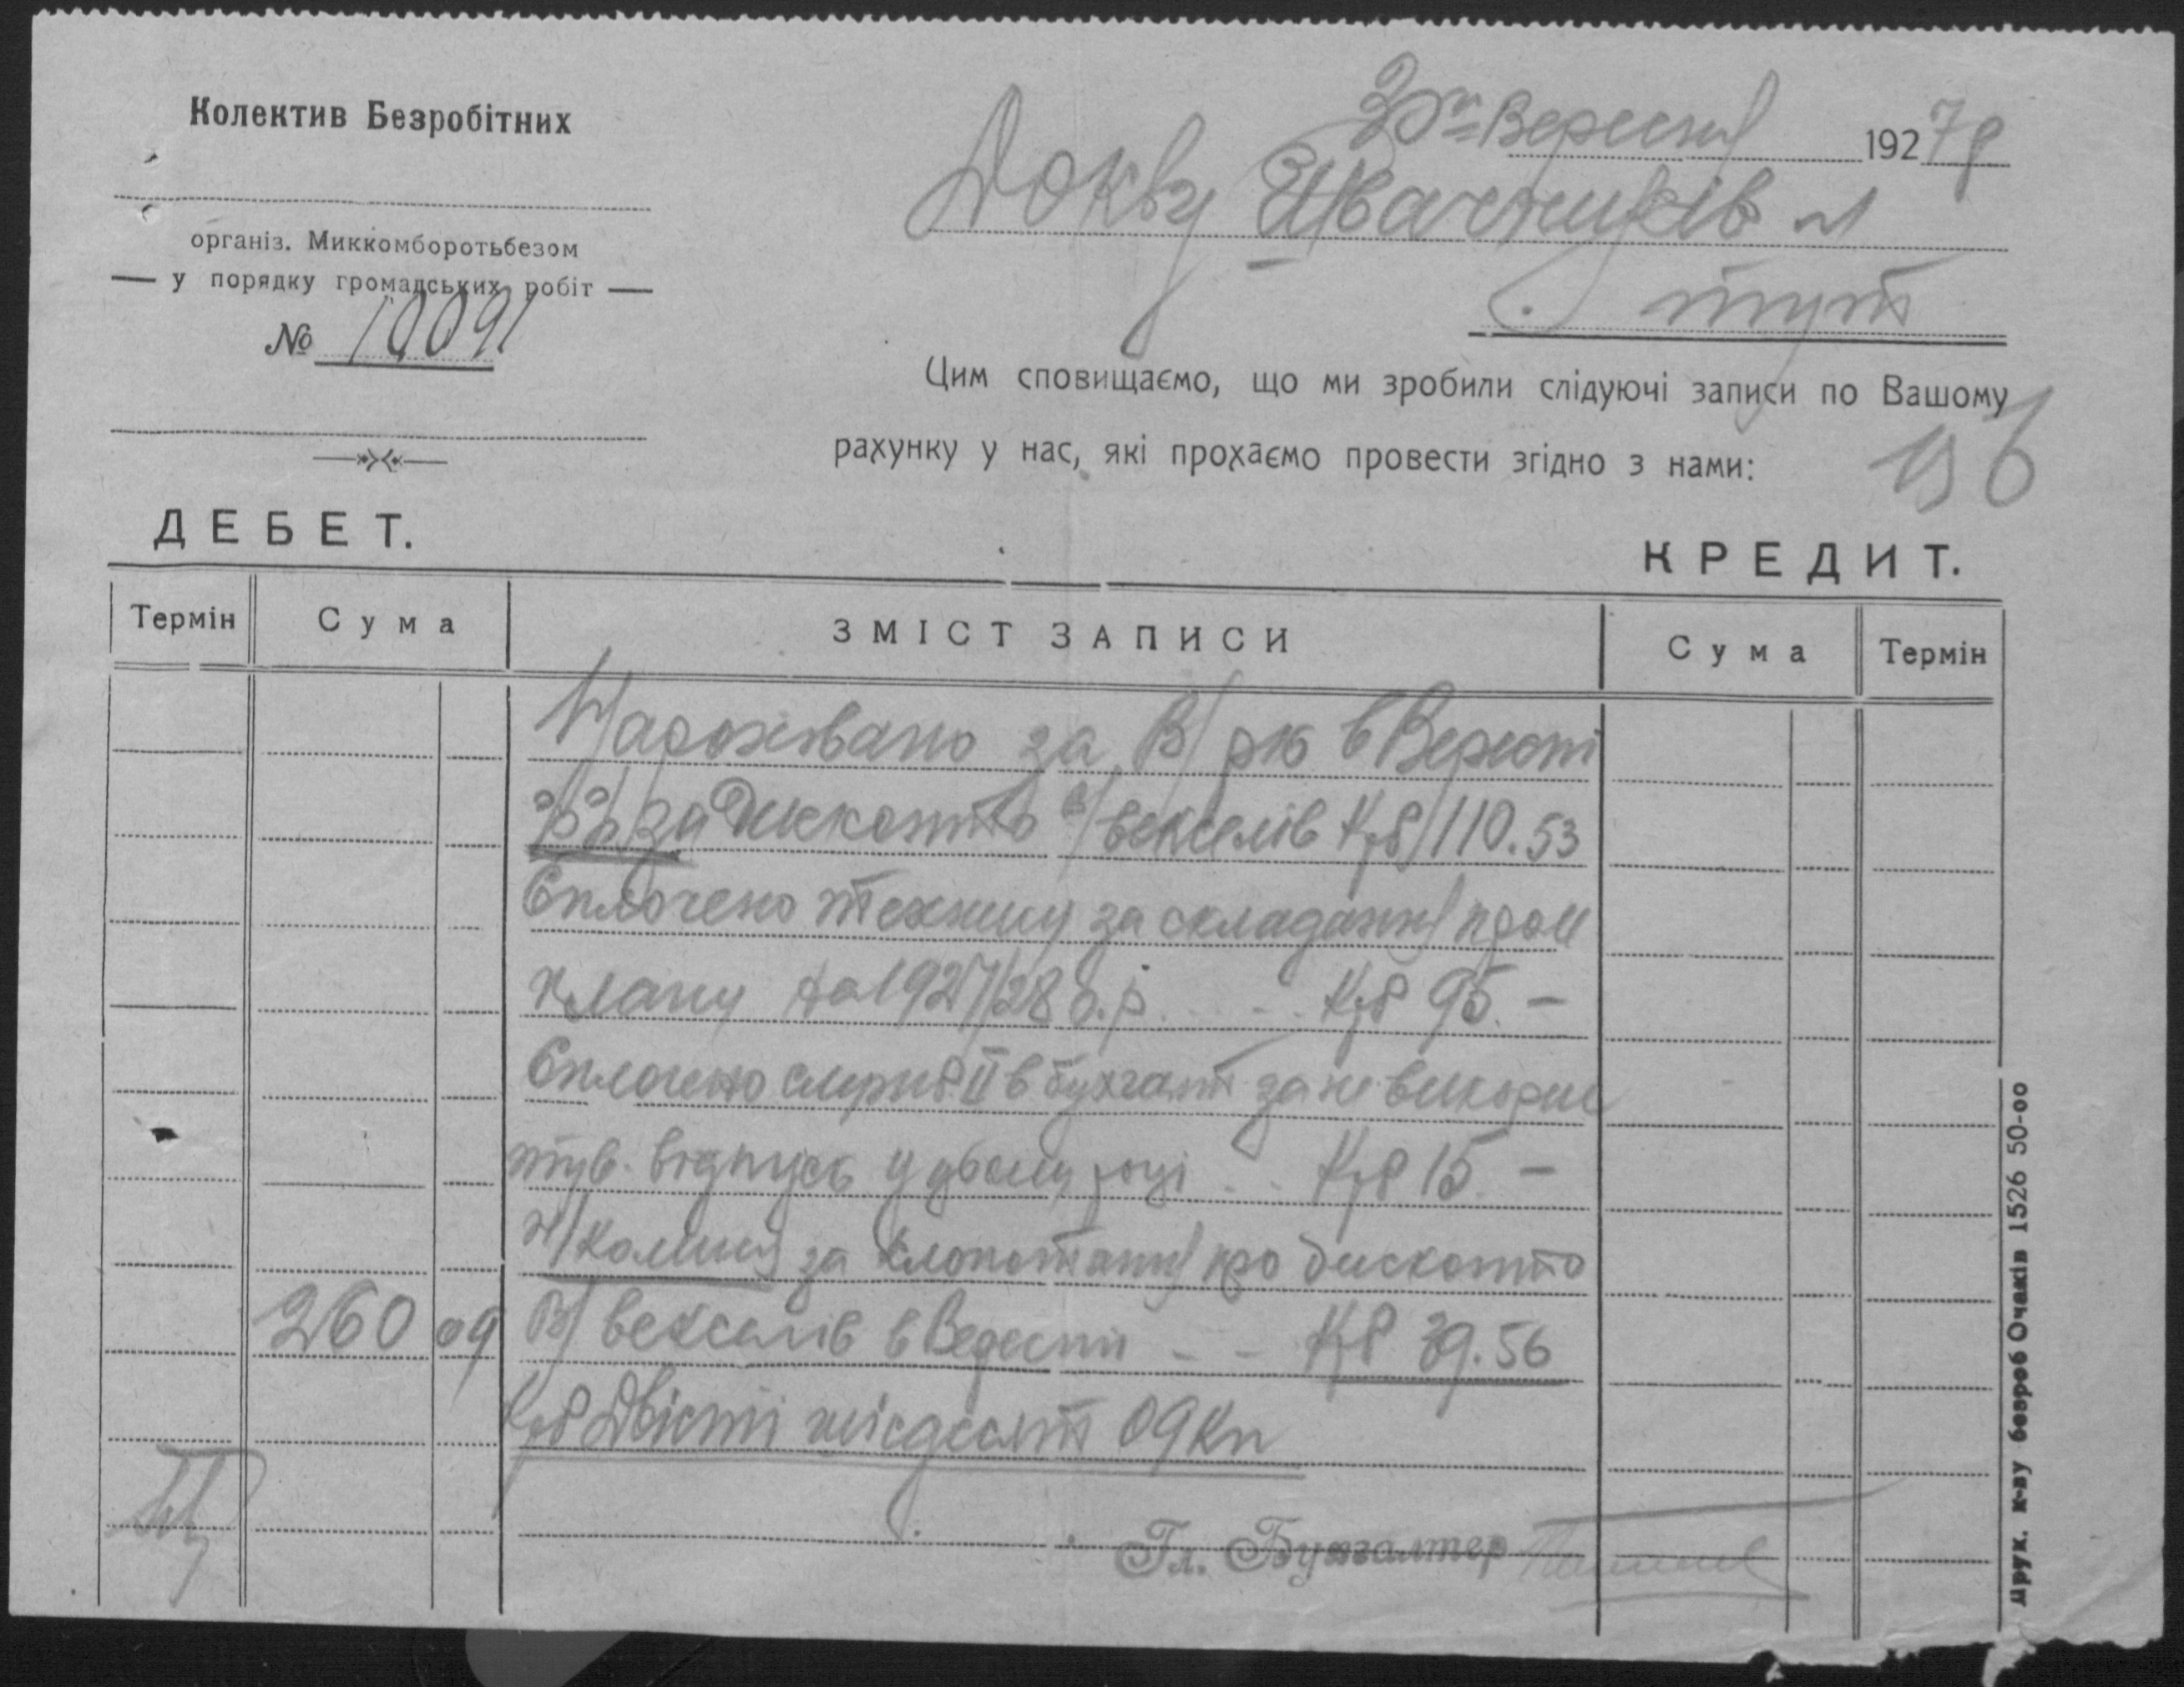 Колектив Безробітних
організ. Миккомборотьбезом
у порядку громадських робіт
№ 10091
30го Вересня 1927 р
Докву Швачників
тут
Цим сповищаємо, що ми зробили слідуючі записи по Вашому
рахунку у нас, які прохаємо провести згідно з нами:
196
ДЕБЕТ.
КРЕДИТ.
Термін Сума ЗМІСТ ЗАПИСИ Сума Термін
Нараховано за В/ рк в Вересні
%% за Дисконто в/векселів Крб 110.53
Сплочено технику за складання пром
плану на 1927/28 о.р. Крб 95.-
Сплочено в бухгалт за не викорис
тув. відпуск у ц/році Крб 15.-
за клопотання про дисконто
260 09 В/ векселів в Вересні - - Крб 39.56
Крб Двісті шісдесят 09 Кп
Гл. Бухгалтер
Друк. к-ву безроб Очаків 1526 50-00